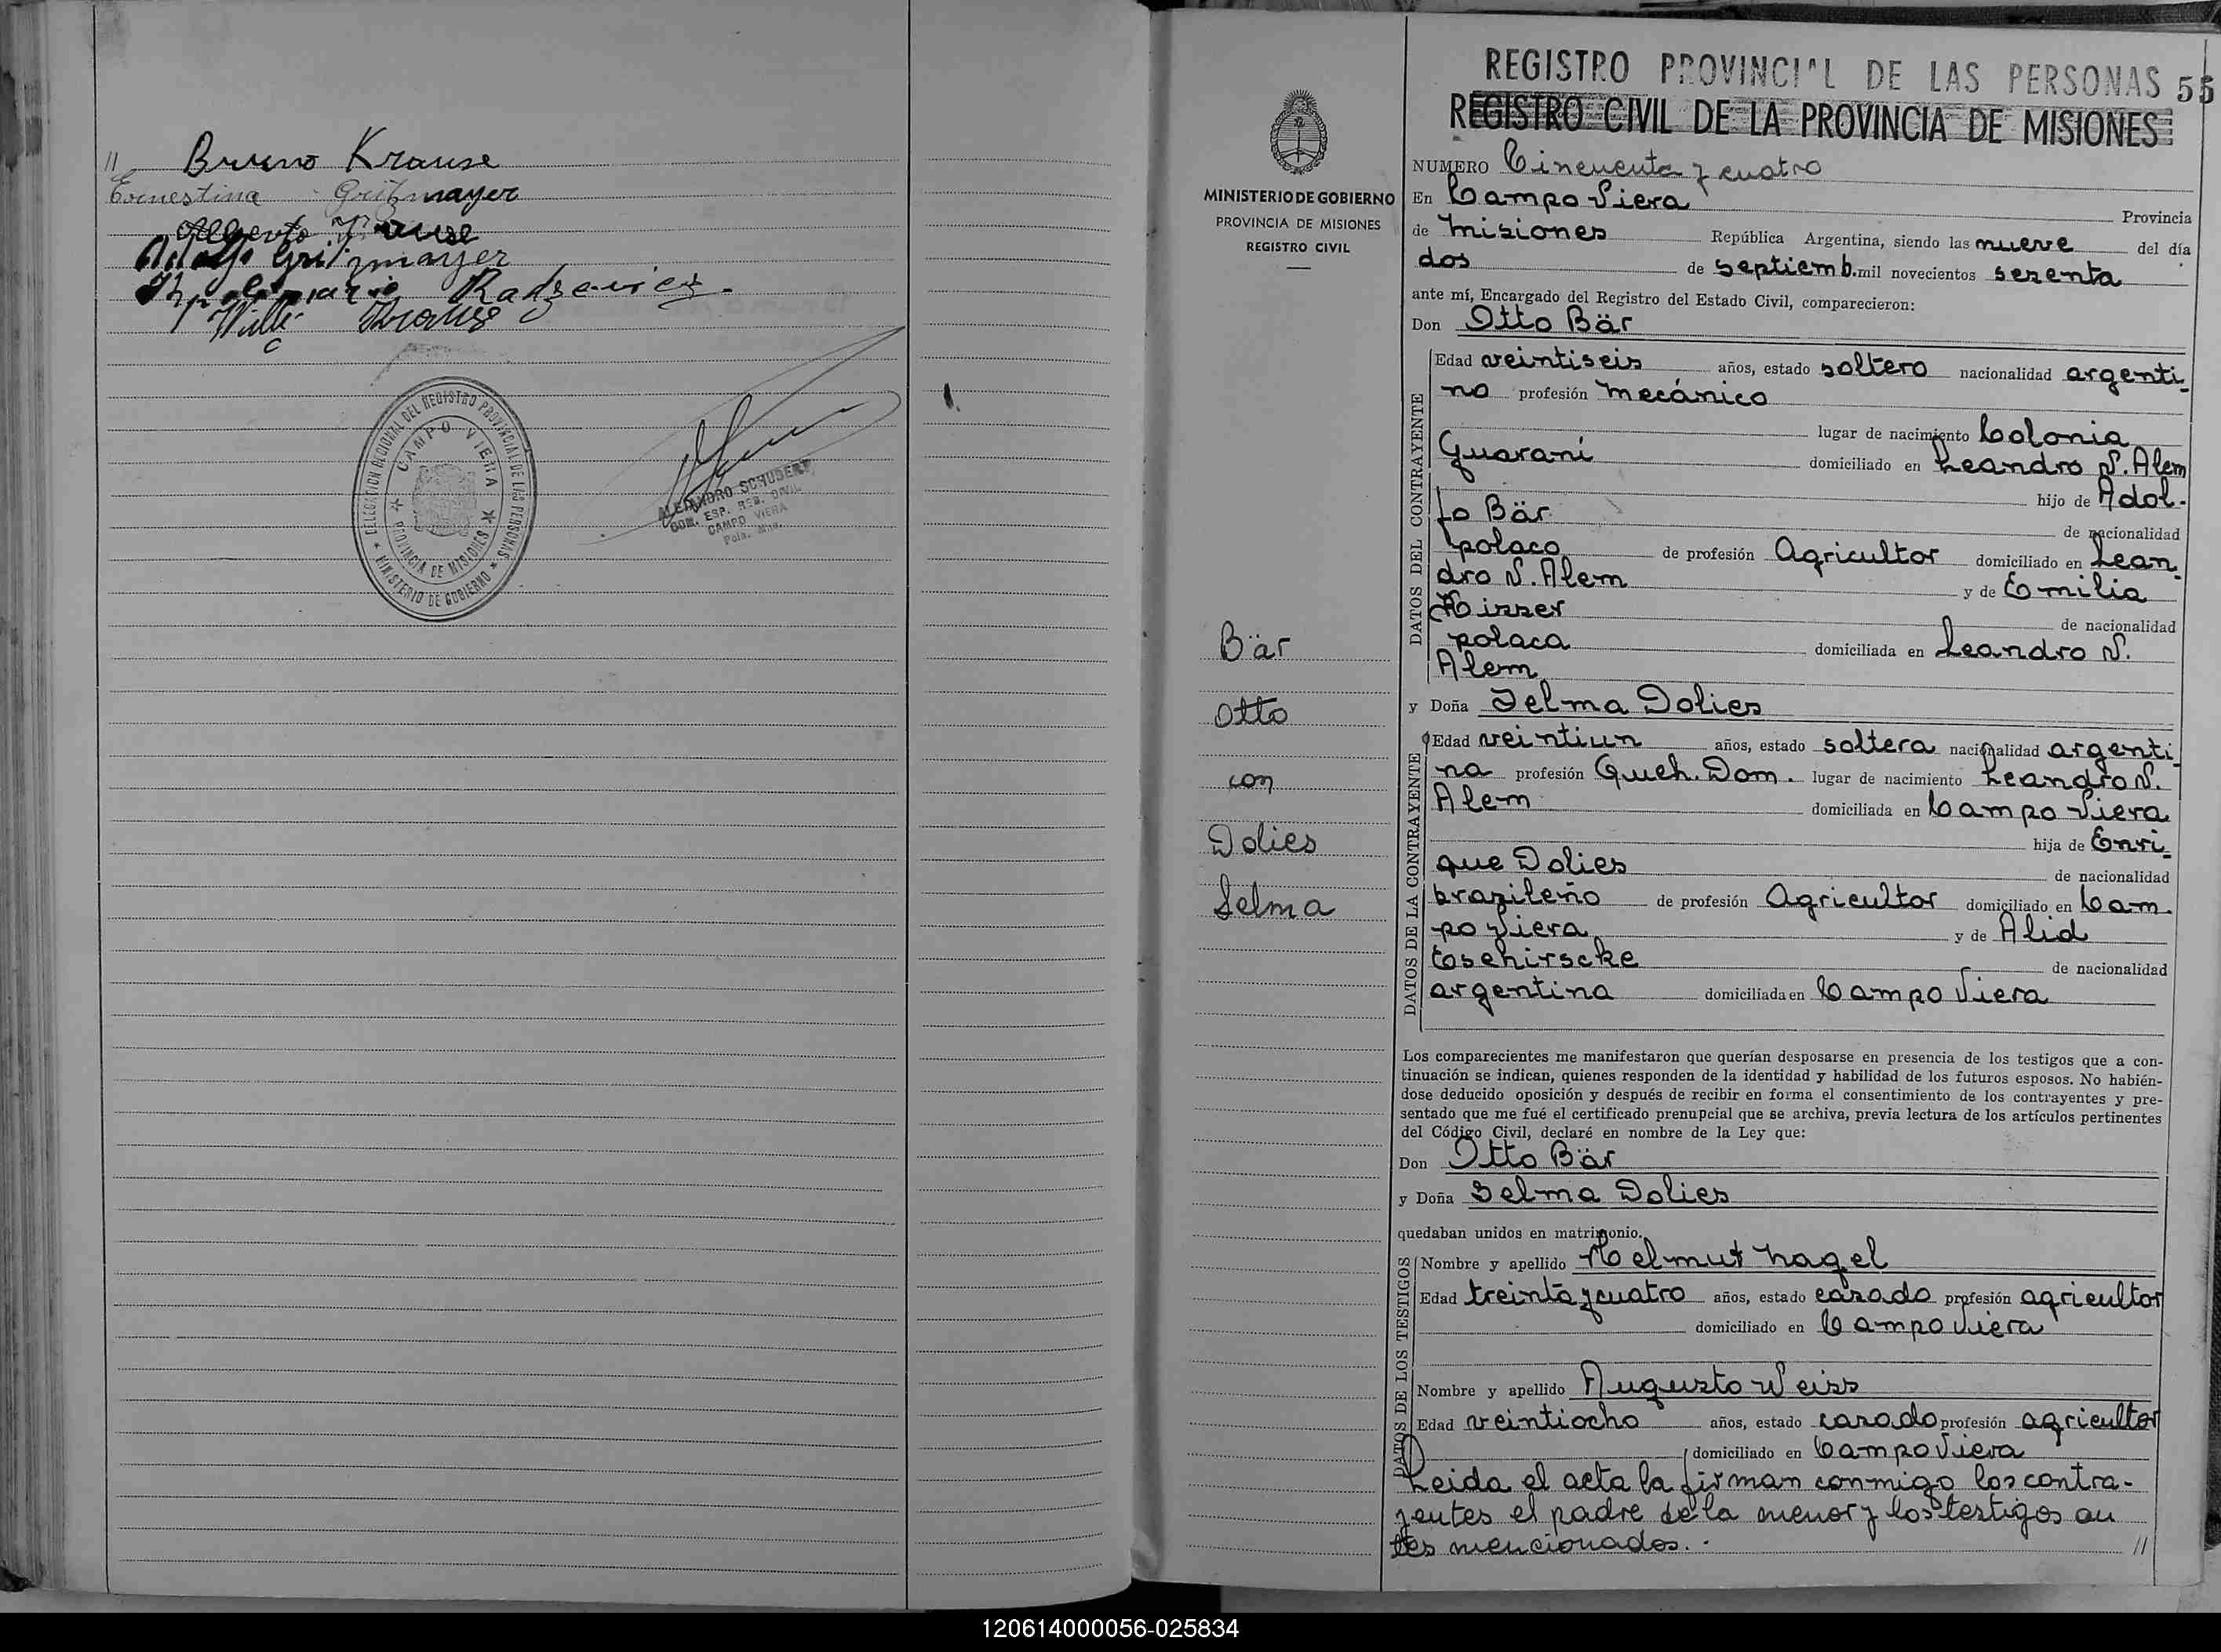 // Bruno Krause
Ernestina Gritzmayer
Alberto Krause
Adolfo Gritzmayer
Radzeviez.
Willi Krause
DELEGACION REGIONAL DEL REGISTRO PROVINCIAL DE LAS PERSONAS
★ MINISTERIO DE GOBIERNO ★
★ CAMPO VIERA ★
PROVINCIA DE MISIONES
ALEJANDRO SCHUBERT
COM. ESP. REG. CIVIL
CAMPO VIERA
Pcia. Mnes.
REGISTRO PROVINCIAL DE LAS PERSONAS 55
REGISTRO CIVIL DE LA PROVINCIA DE MISIONES
MINISTERIO DE GOBIERNO
PROVINCIA DE MISIONES
REGISTRO CIVIL
Bär
Otto
con
Dolies
Selma
NUMERO Cincuenta y cuatro
En Campo Viera Provincia
de Misiones República Argentina, siendo las nueve del día
dos de septiemb. mil novecientos sesenta
ante mí, Encargado del Registro del Estado Civil, comparecieron:
Don Otto Bär
DATOS DEL CONTRAYENTE
Edad veintiseis años, estado soltero nacionalidad argenti-
no profesión mecánico
lugar de nacimiento Colonia
Guaraní domiciliado en Leandro N. Alem
hijo de Adol-
fo Bär de nacionalidad
polaco de profesión Agricultor domiciliado en Lean-
dro N. Alem y de Emilia
Hisser de nacionalidad
polaca domiciliada en Leandro N.
Alem
y Doña Selma Dolies
DATOS DE LA CONTRAYENTE
Edad veintiun años, estado soltera nacionalidad argenti-
na profesión Queh. Dom. lugar de nacimiento Leandro N.
Alem domiciliada en Campo Viera
hija de Enri-
que Dolies de nacionalidad
brazileño de profesión Agricultor domiciliado en Cam-
po Viera y de Alid
Eschirscke de nacionalidad
argentina domiciliada en Campo Viera
Los comparecientes me manifestaron que querían desposarse en presencia de los testigos que a con-
tinuación se indican, quienes responden de la identidad y habilidad de los futuros esposos. No habién-
dose deducido oposición y después de recibir en forma el consentimiento de los contrayentes y pre-
sentado que me fué el certificado prenupcial que se archiva, previa lectura de los artículos pertinentes
del Código Civil, declaré en nombre de la Ley que:
Don Otto Bär
y Doña Selma Dolies
quedaban unidos en matrimonio.
DATOS DE LOS TESTIGOS
Nombre y apellido Helmut Nagel
Edad treinta y cuatro años, estado casado profesión agricultor
domiciliado en Campo Viera
Nombre y apellido Augusto Weiss
Edad veintiocho años, estado casado profesión agricultor
domiciliado en Campo Viera
Leida el acta la firman conmigo los contra-
yentes el padre de la menor y los testigos an
tes mencionados. - //
120614000056-025834